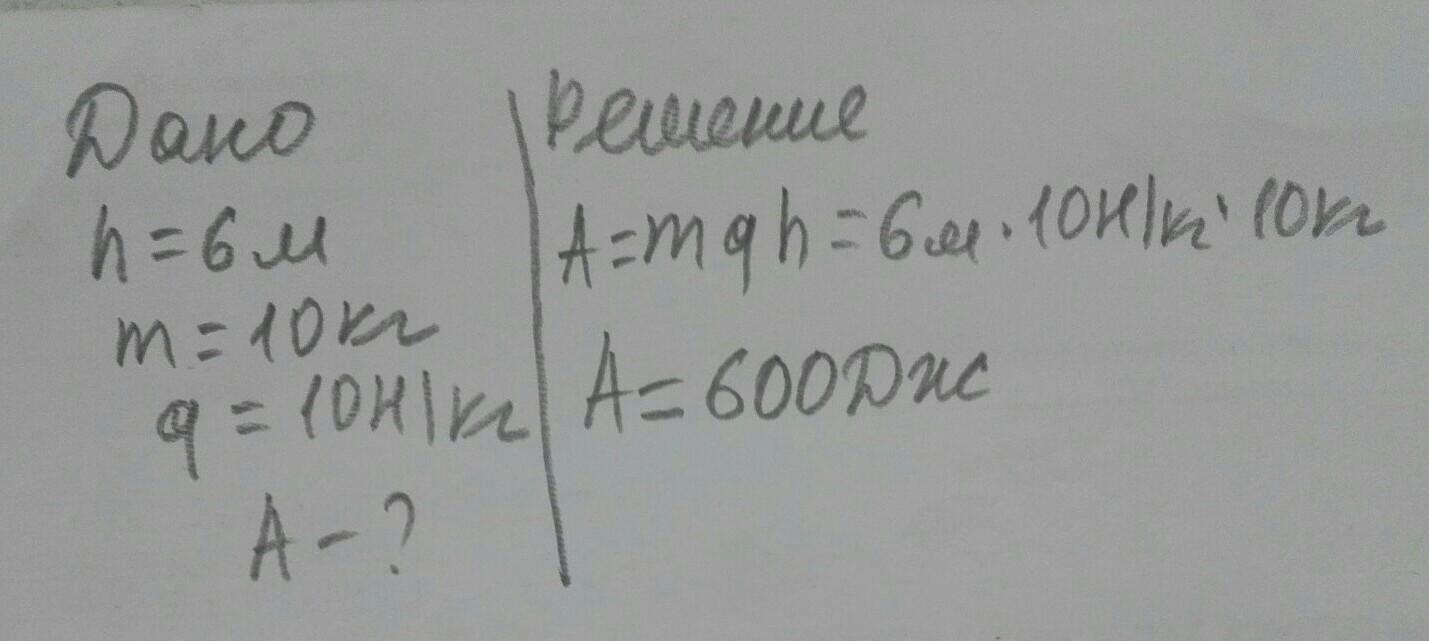 Дано
h = 6 м
m = 10 кг
g = 10 Н/кг
A - ?
Решение
A = m g h = 6 м · 10 Н/кг · 10 кг
A = 600 Дж